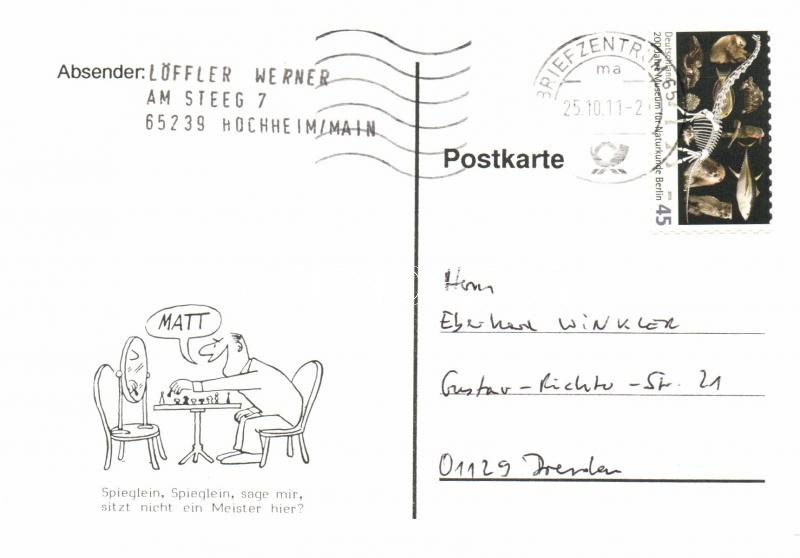 Absender: LÖFFLER WERNER
AM STEEG 7
65239 HOCHHEIM/MAIN
BRIEFZENTR 65
ma
25.10.11-2
Deutschland
200 Jahre Museum für Naturkunde Berlin
45
Postkarte
Herrn
Eberhard WINKLER
Gustav-Richter-Str. 21
01129 Dresden
MATT
Spieglein, Spieglein, sage mir,
sitzt nicht ein Meister hier?